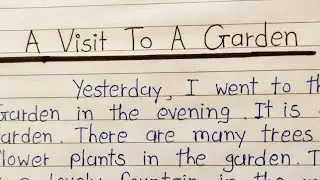 A Visit To A Garden
Yesterday, I went to
Garden in the evening. It is
There are many trees
flower plants in the garden.
lovely fountain in the